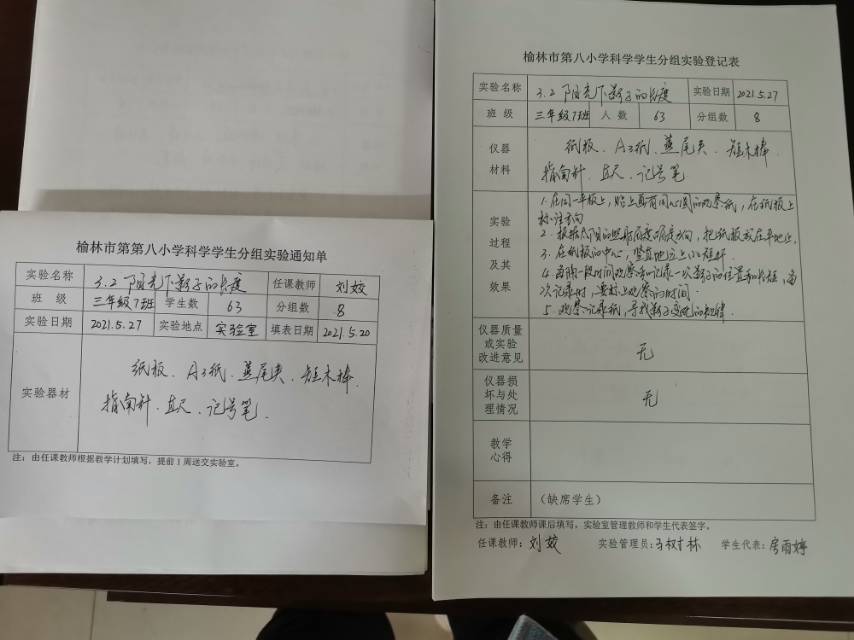 榆林市第第八小学科学学生分组实验通知单
实验名称 3.2 阳光下影子的长度 任课教师 刘姣
班 级 三年级7班 学生数 63 分组数 8
实验日期 2021.5.27 实验地点 实验室 填表日期 2021.5.20
实验器材 纸板、A3纸、燕尾夹、短木棒、
指南针、直尺、记号笔.
注：由任课教师根据教学计划填写，提前1周送交实验室。
榆林市第八小学科学学生分组实验登记表
实验名称 3.2 阳光下影子的长度 实验日期 2021.5.27
班 级 三年级7班 人 数 63 分组数 8
仪器
材料
纸板、A3纸、燕尾夹、短木棒、
指南针、直尺、记号笔
实验
过程
及其
效果
1.在同一平板上，贴上画有同心圆的观察纸，在纸板上
标注方向
2.根据太阳的照射角度确定方向，把纸板放在平地上.
3.在纸板的中心，竖直地立上小短杆.
4.每隔一段时间观察和记录一次影子的位置和长短，每
次记录时，要标上观察的时间.
5.观察记录纸，寻找影子变化的规律.
仪器质量
或实验
改进意见
无
仪器损
坏与处
理情况
无
教学
心得
备注 （缺席学生）
注：由任课教师课后填写，实验室管理教师和学生代表签字。
任课教师：刘姣 实验管理员：王树林 学生代表：房雨婷